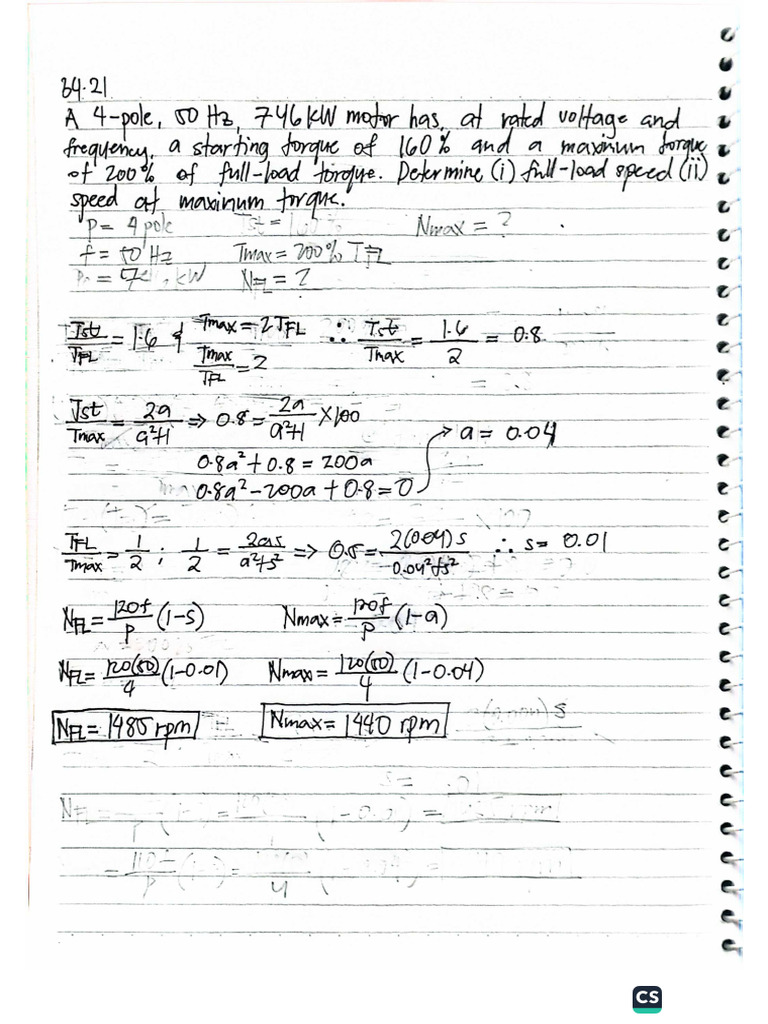 34.21
A 4-pole, 50 Hz, 746 kW motor has, at rated voltage and
frequency, a starting torque of 160% and a maximum torque
of 200% of full-load torque. Determine (i) full-load speed (ii)
speed at maximum torque.
P = 4 pole Tst = 160% Nmax = ?
f = 50 Hz Tmax = 200% TFL
kW NFL = ?
Tst/TFL = 1.6 & Tmax = 2TFL Tmax/TFL = 2 ∴ Tst/Tmax = 1.6/2 = 0.8
Tst/Tmax = 2a/a²+1 ⇒ 0.8 = 2a/a²+1 × 100
0.8a² + 0.8 = 200a
0.8a² - 200a + 0.8 = 0 → a = 0.04
TFL/Tmax = 1/2 ; 1/2 = 2as/a²+s² ⇒ 0.5 = 2(0.04)s/0.04²+s² ∴ s = 0.01
NFL = 120f/P (1-s) Nmax = 120f/P (1-a)
NFL = 120(50)/4 (1-0.01) Nmax = 120(50)/4 (1-0.04)
NFL = 1485 rpm Nmax = 1440 rpm
CS